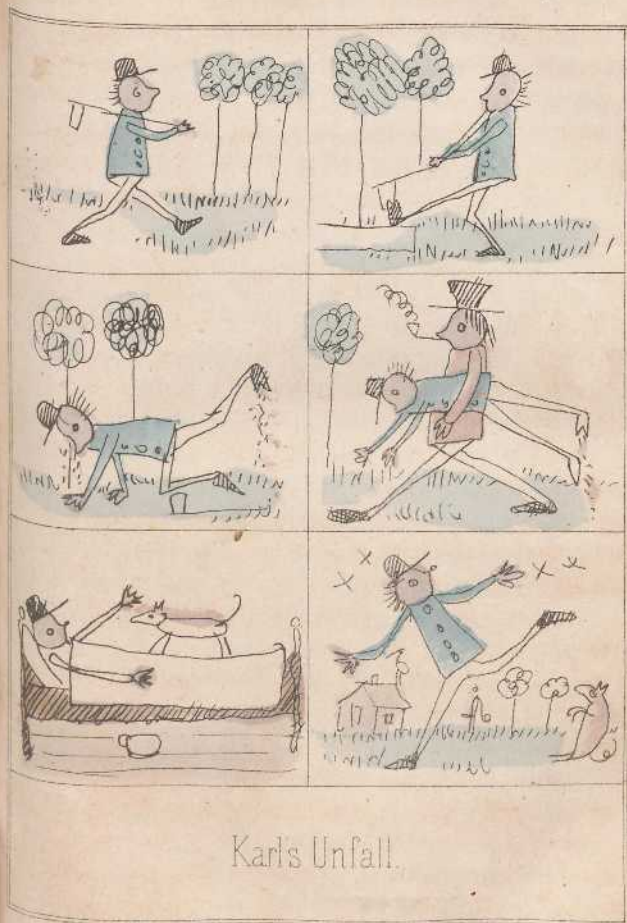 Karl's Unfall.